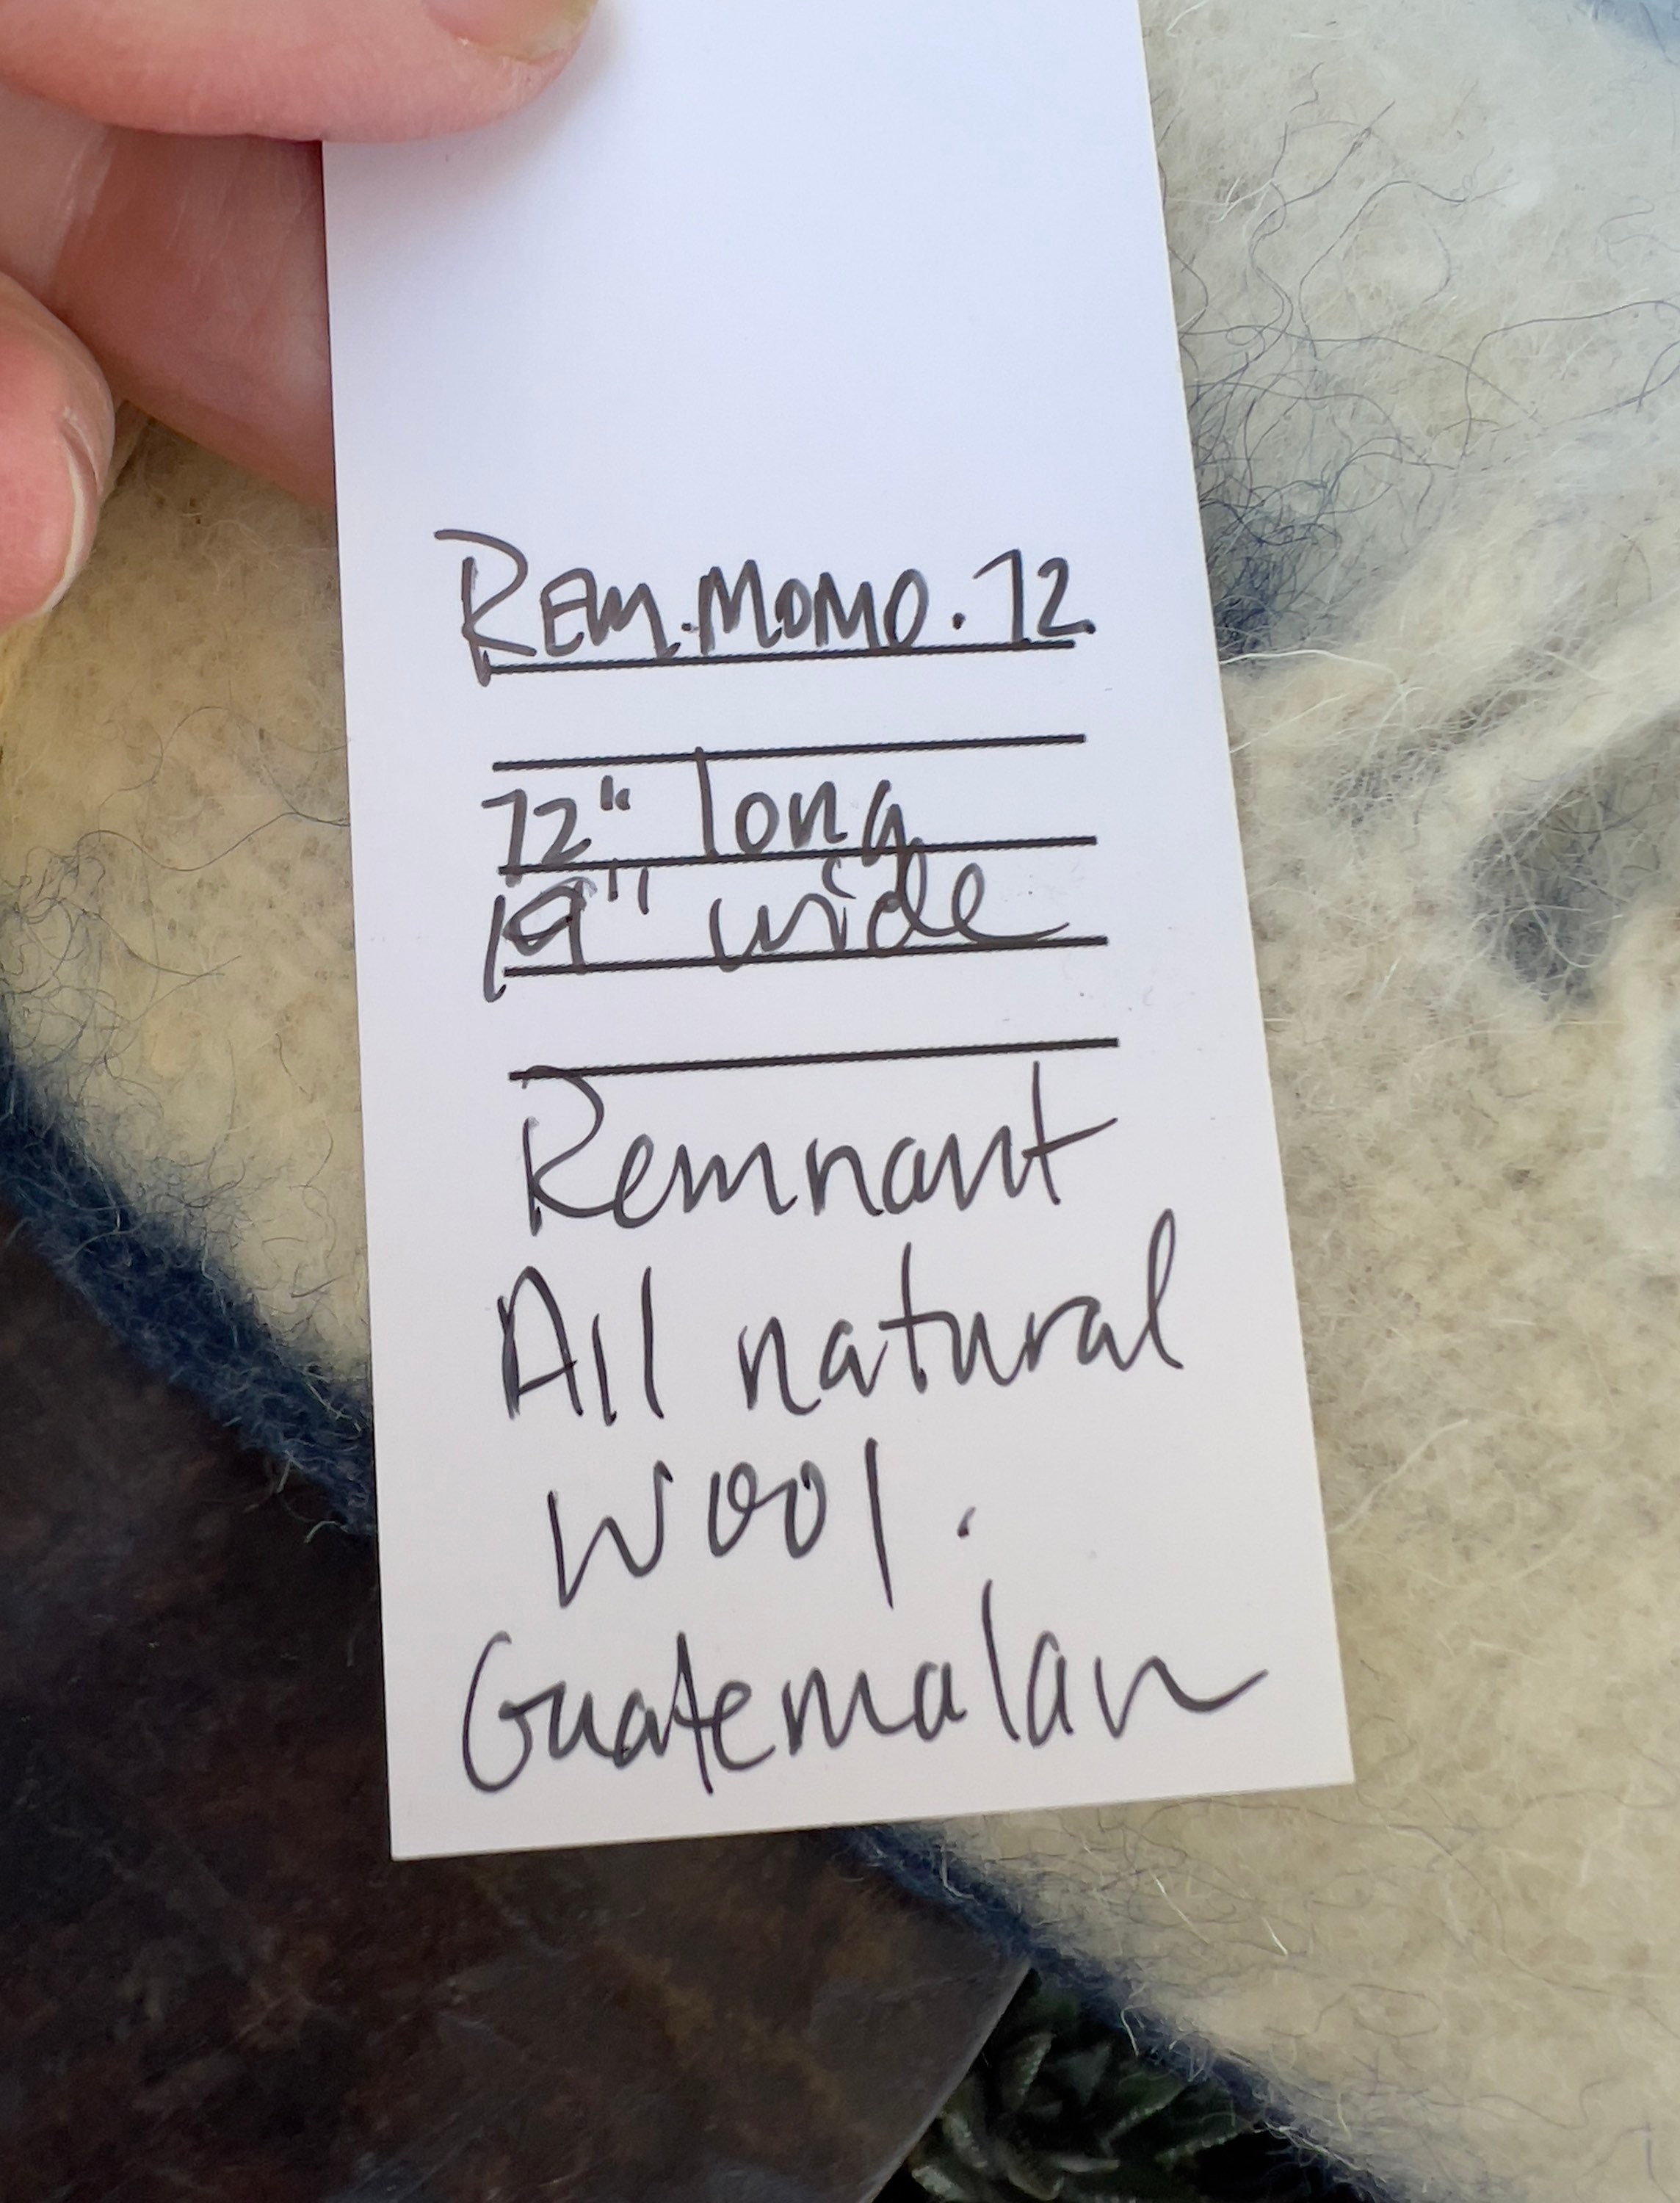 REM.MOMO.72
72" long
19" wide
Remnant
All natural
wool.
Guatemalan